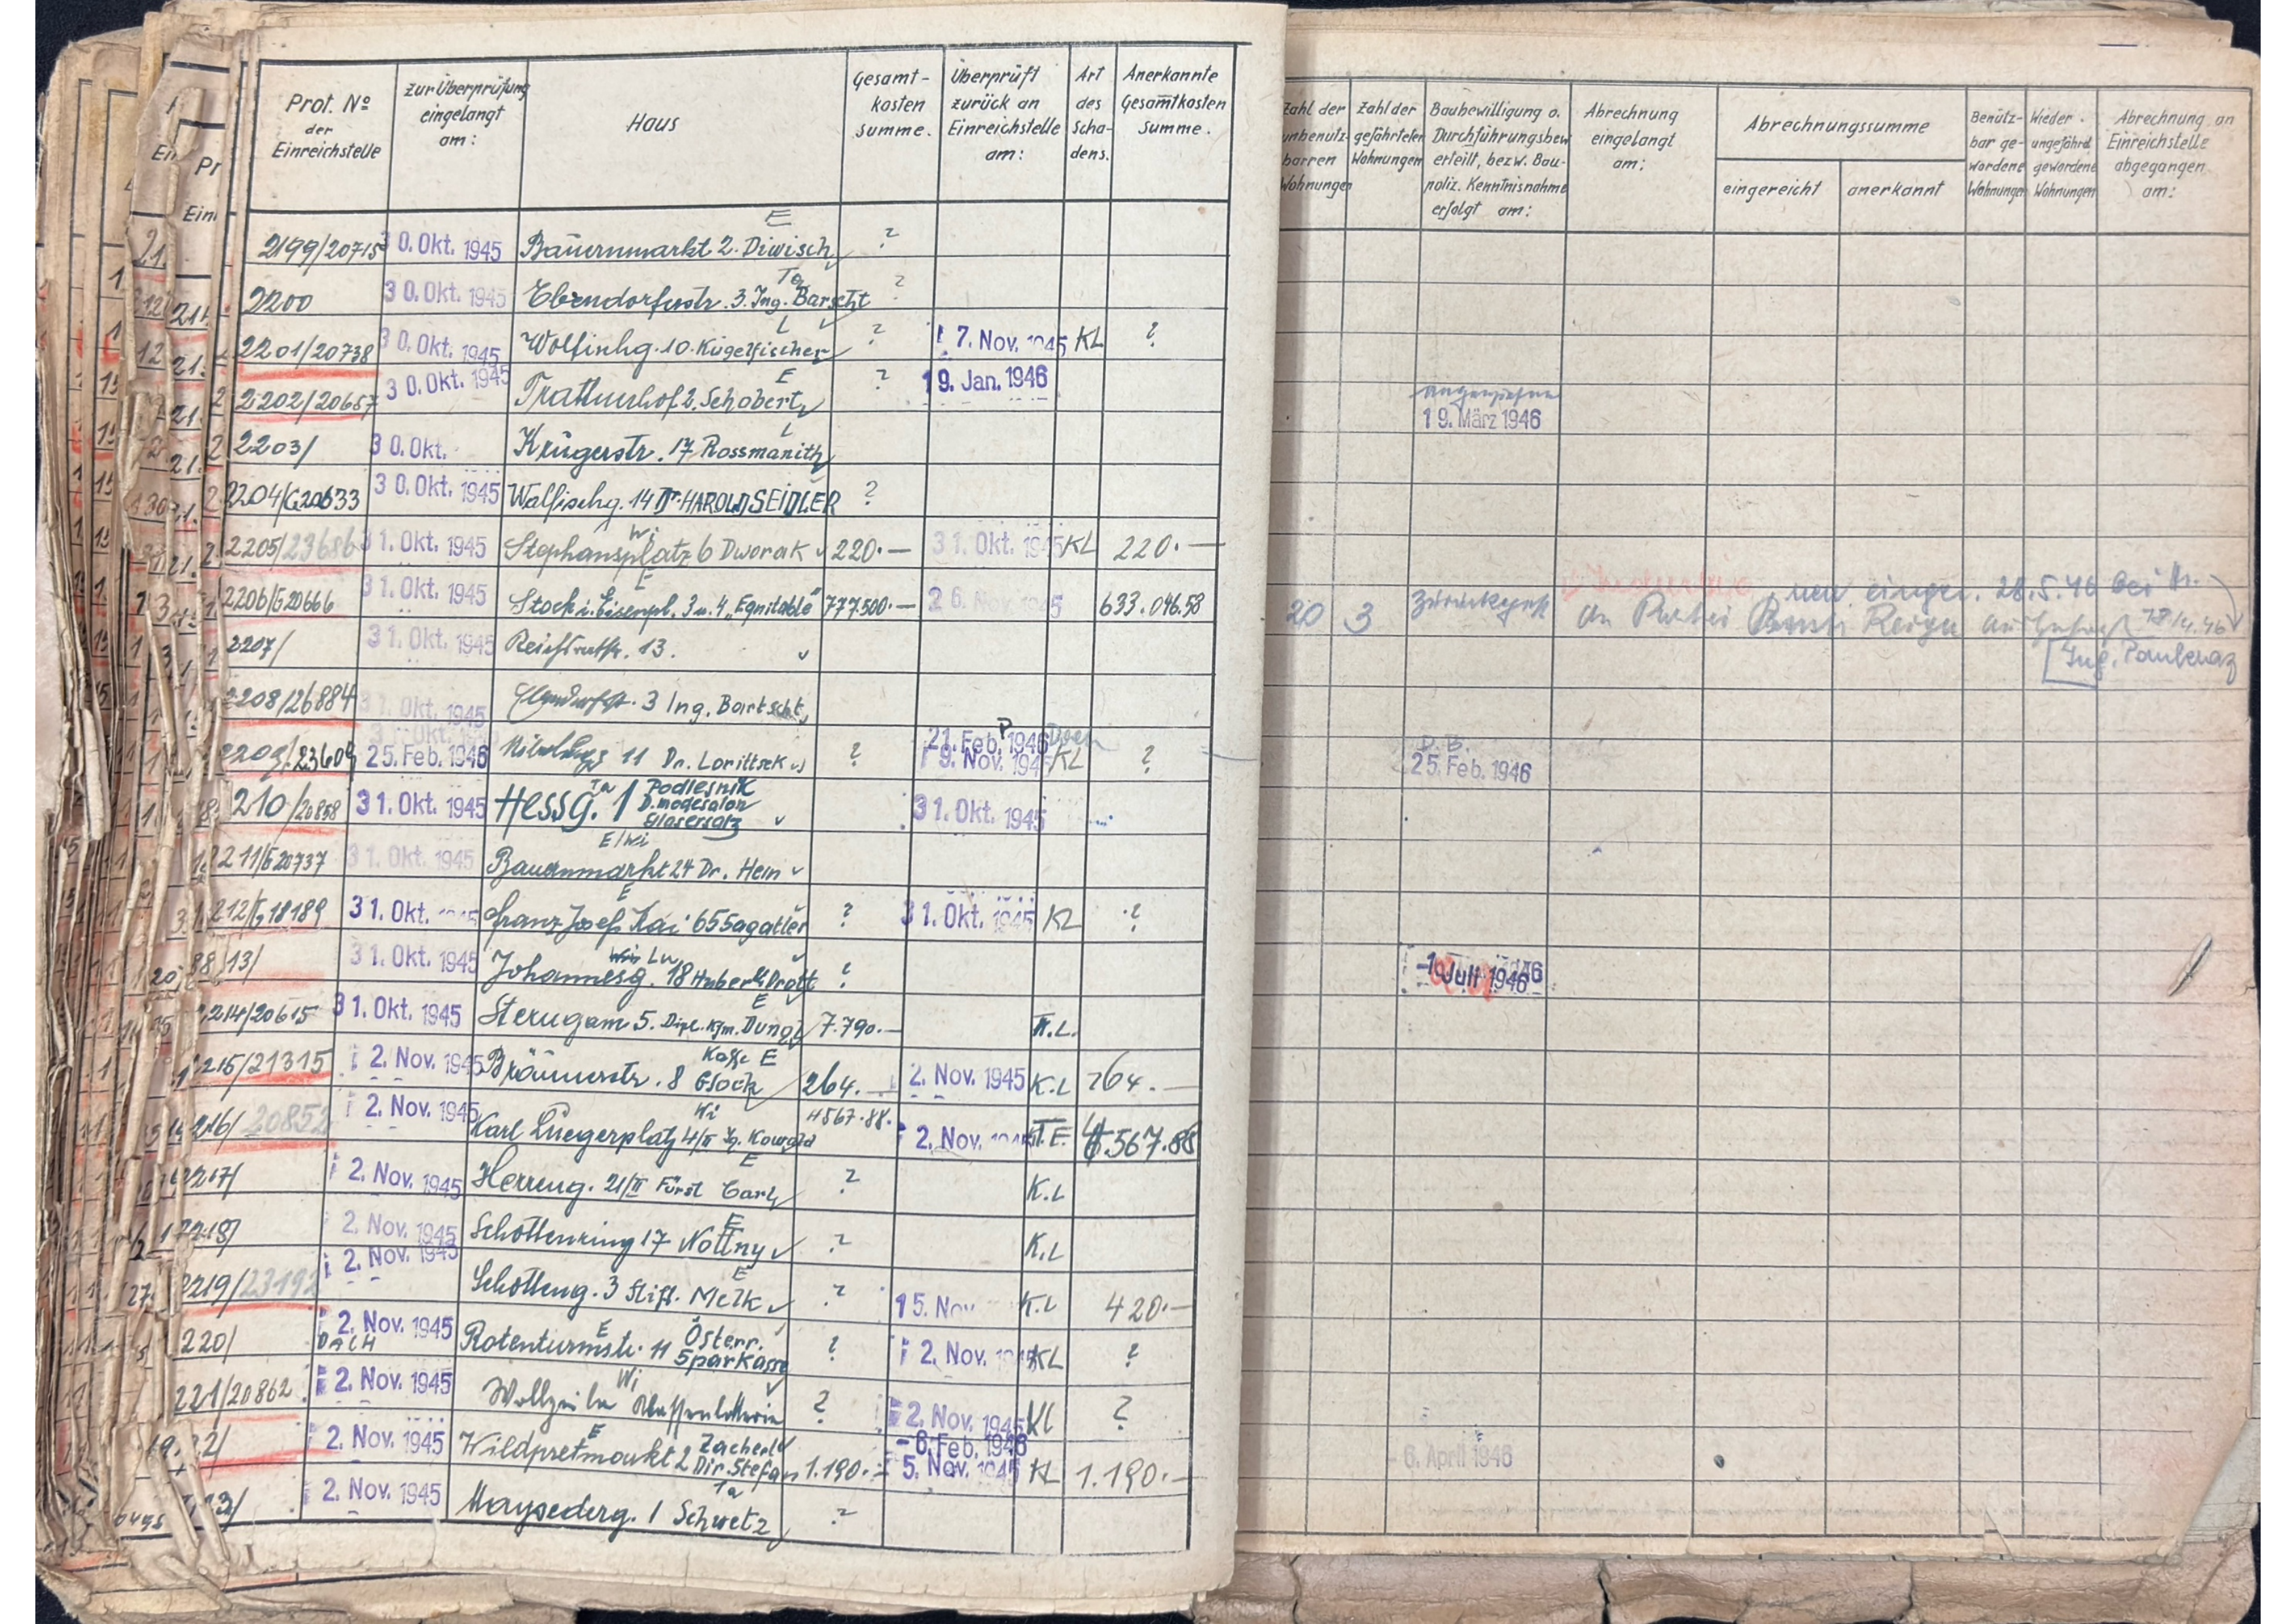 Prot. No der Einreichstelle
zur Überprüfung eingelangt am:
Haus
Gesamt-kosten summe.
Überprüft zurück an Einreichstelle am:
Art des Scha-dens.
Anerkannte Gesamtkosten Summe.
Zahl der unbenütz-barren Wohnungen
Zahl der gefährteten Wohnungen
Baubewilligung o. Durchführungsbew. erteilt, bezw. Bau-poliz. Kenntnisnahme erfolgt am:
Abrechnung eingelangt am:
Abrechnungssumme
eingereicht
anerkannt
Benütz-bar ge-wordene Wohnungen
Wieder. ungefährd. gewordene Wohnungen
Abrechnung an Einreichstelle abgegangen am:
E
2199/20715 30. Okt. 1945 Bauernmarkt 2. Diwisch ?
2200 30. Okt. 1945 Ebendorferstr. 3. Ing. Barscht ?
L
2201/20738 30. Okt. 1945 Wolfinhg. 10. Kugelfischer ? 17. Nov. 1945 KL ?
E
2202/20657 30. Okt. 1945 Trattnerhof 2. Schobert ? 19. Jan. 1946 19. März 1946
L
2203/ 30. Okt. Krügerstr. 17 Rossmanith
2204/G20633 30. Okt. 1945 Walfischg. 14 Dr. HAROLD SEIDLER ?
Wi
2205/23686 31. Okt. 1945 Stephansplatz 6 Dworak 220.— 31. Okt. 1945 KL 220.—
E
2206/G20666 31. Okt. 1945 Stock i. Eisenpl. 3 u. 4 „Equitable" 777.500.— 26. Nov. 1945 633.046.58 20 3 neu einger. 28.5.46 bei
an Partei
2207/ 31. Okt. 1945 Reichsratstr. 13.
2208/26884 31. Okt. 1945 3 Ing. Bartscht
2209/23609 31. Okt. 1945 25. Feb. 1946 11 Dr. Lorittsck ? 21. Feb. 1946 19. Nov. 1945 KL ? D.B. 25. Feb. 1946
210/20858 31. Okt. 1945 Hessg. 1 Ta Podlesnik D. modesalon Glasersatz 31. Okt. 1945
E/Wi
211/G20737 31. Okt. 1945 Bauernmarkt 24 Dr. Hein
E
212/G18189 31. Okt. 1945 Franz Josefs Kai 65 Sagatler ? 31. Okt. 1945 KL ?
13/ 31. Okt. 1945 Johannesg. 18 Huber & Drott ? -1. Juli 1946
E
214/20615 31. Okt. 1945 Sterngasse 5. Dipl. Kfm. Dungl 7.790.— K.L.
Kaffe E
215/21315 2. Nov. 1945 Bräunerstr. 8 Glock 264.— 2. Nov. 1945 K.L 264.—
Wi
216/20852 2. Nov. 1945 Karl Luegerplatz 4/II Ig. Kowald 4567.88. 2. Nov. 1945 T.E. 4.567.88
E
2217/ 2. Nov. 1945 Herreng. 21/II Fürst Carl ? K.L
E
2218/ 2. Nov. 1945 Schottenring 17 Nottny ? K.L
E
2219/23192 2. Nov. 1945 Schotteng. 3 Stift. Melk ? 15. Nov K.L 420.—
E
220/ 2. Nov. 1945 DACH Rotenturmstr. 11 Österr. Sparkasse ? 2. Nov. 1945 KL ?
Wi
221/20862 2. Nov. 1945 Wollzeile Klassenlotterie ? 2. Nov. 1945 KL ?
E
2/ 2. Nov. 1945 Wildpretmarkt 2 Zacherl Dir. Stefan 1.190.— -6. Feb. 1946 5. Nov. 1945 KL 1.190.— -6. April 1946
Ta
3/ 2. Nov. 1945 Maysederg. 1 Schwetz ?